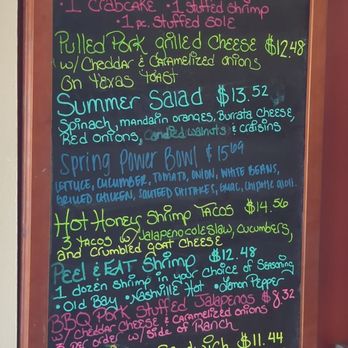 • 1 Crabcake • 1 Stuffed Shrimp
• 1 pc. Stuffed Sole
Pulled Pork grilled cheese $12.48
w/ Cheddar & Caramelized onions
on Texas Toast
Summer Salad $13.52
Spinach, mandarin oranges, Burrata cheese,
Red onions, candied walnuts & craisins
Spring Power Bowl $15.69
Lettuce, cucumber, tomato, onion, white beans,
grilled chicken, sauteed shitakes, guac, chipotle aioli.
Hot Honey Shrimp Tacos $14.56
3 tacos w/ Jalapeno coleslaw, cucumbers,
and crumbled goat cheese
Peel & Eat Shrimp $12.48
1 dozen shrimp in your choice of seasoning
• Old Bay • Nashville Hot • Lemon Pepper
BBQ Pork Stuffed Jalapenos $8.32
w/ Cheddar cheese & caramelized onions
3 per order w/ side of Ranch
$11.44